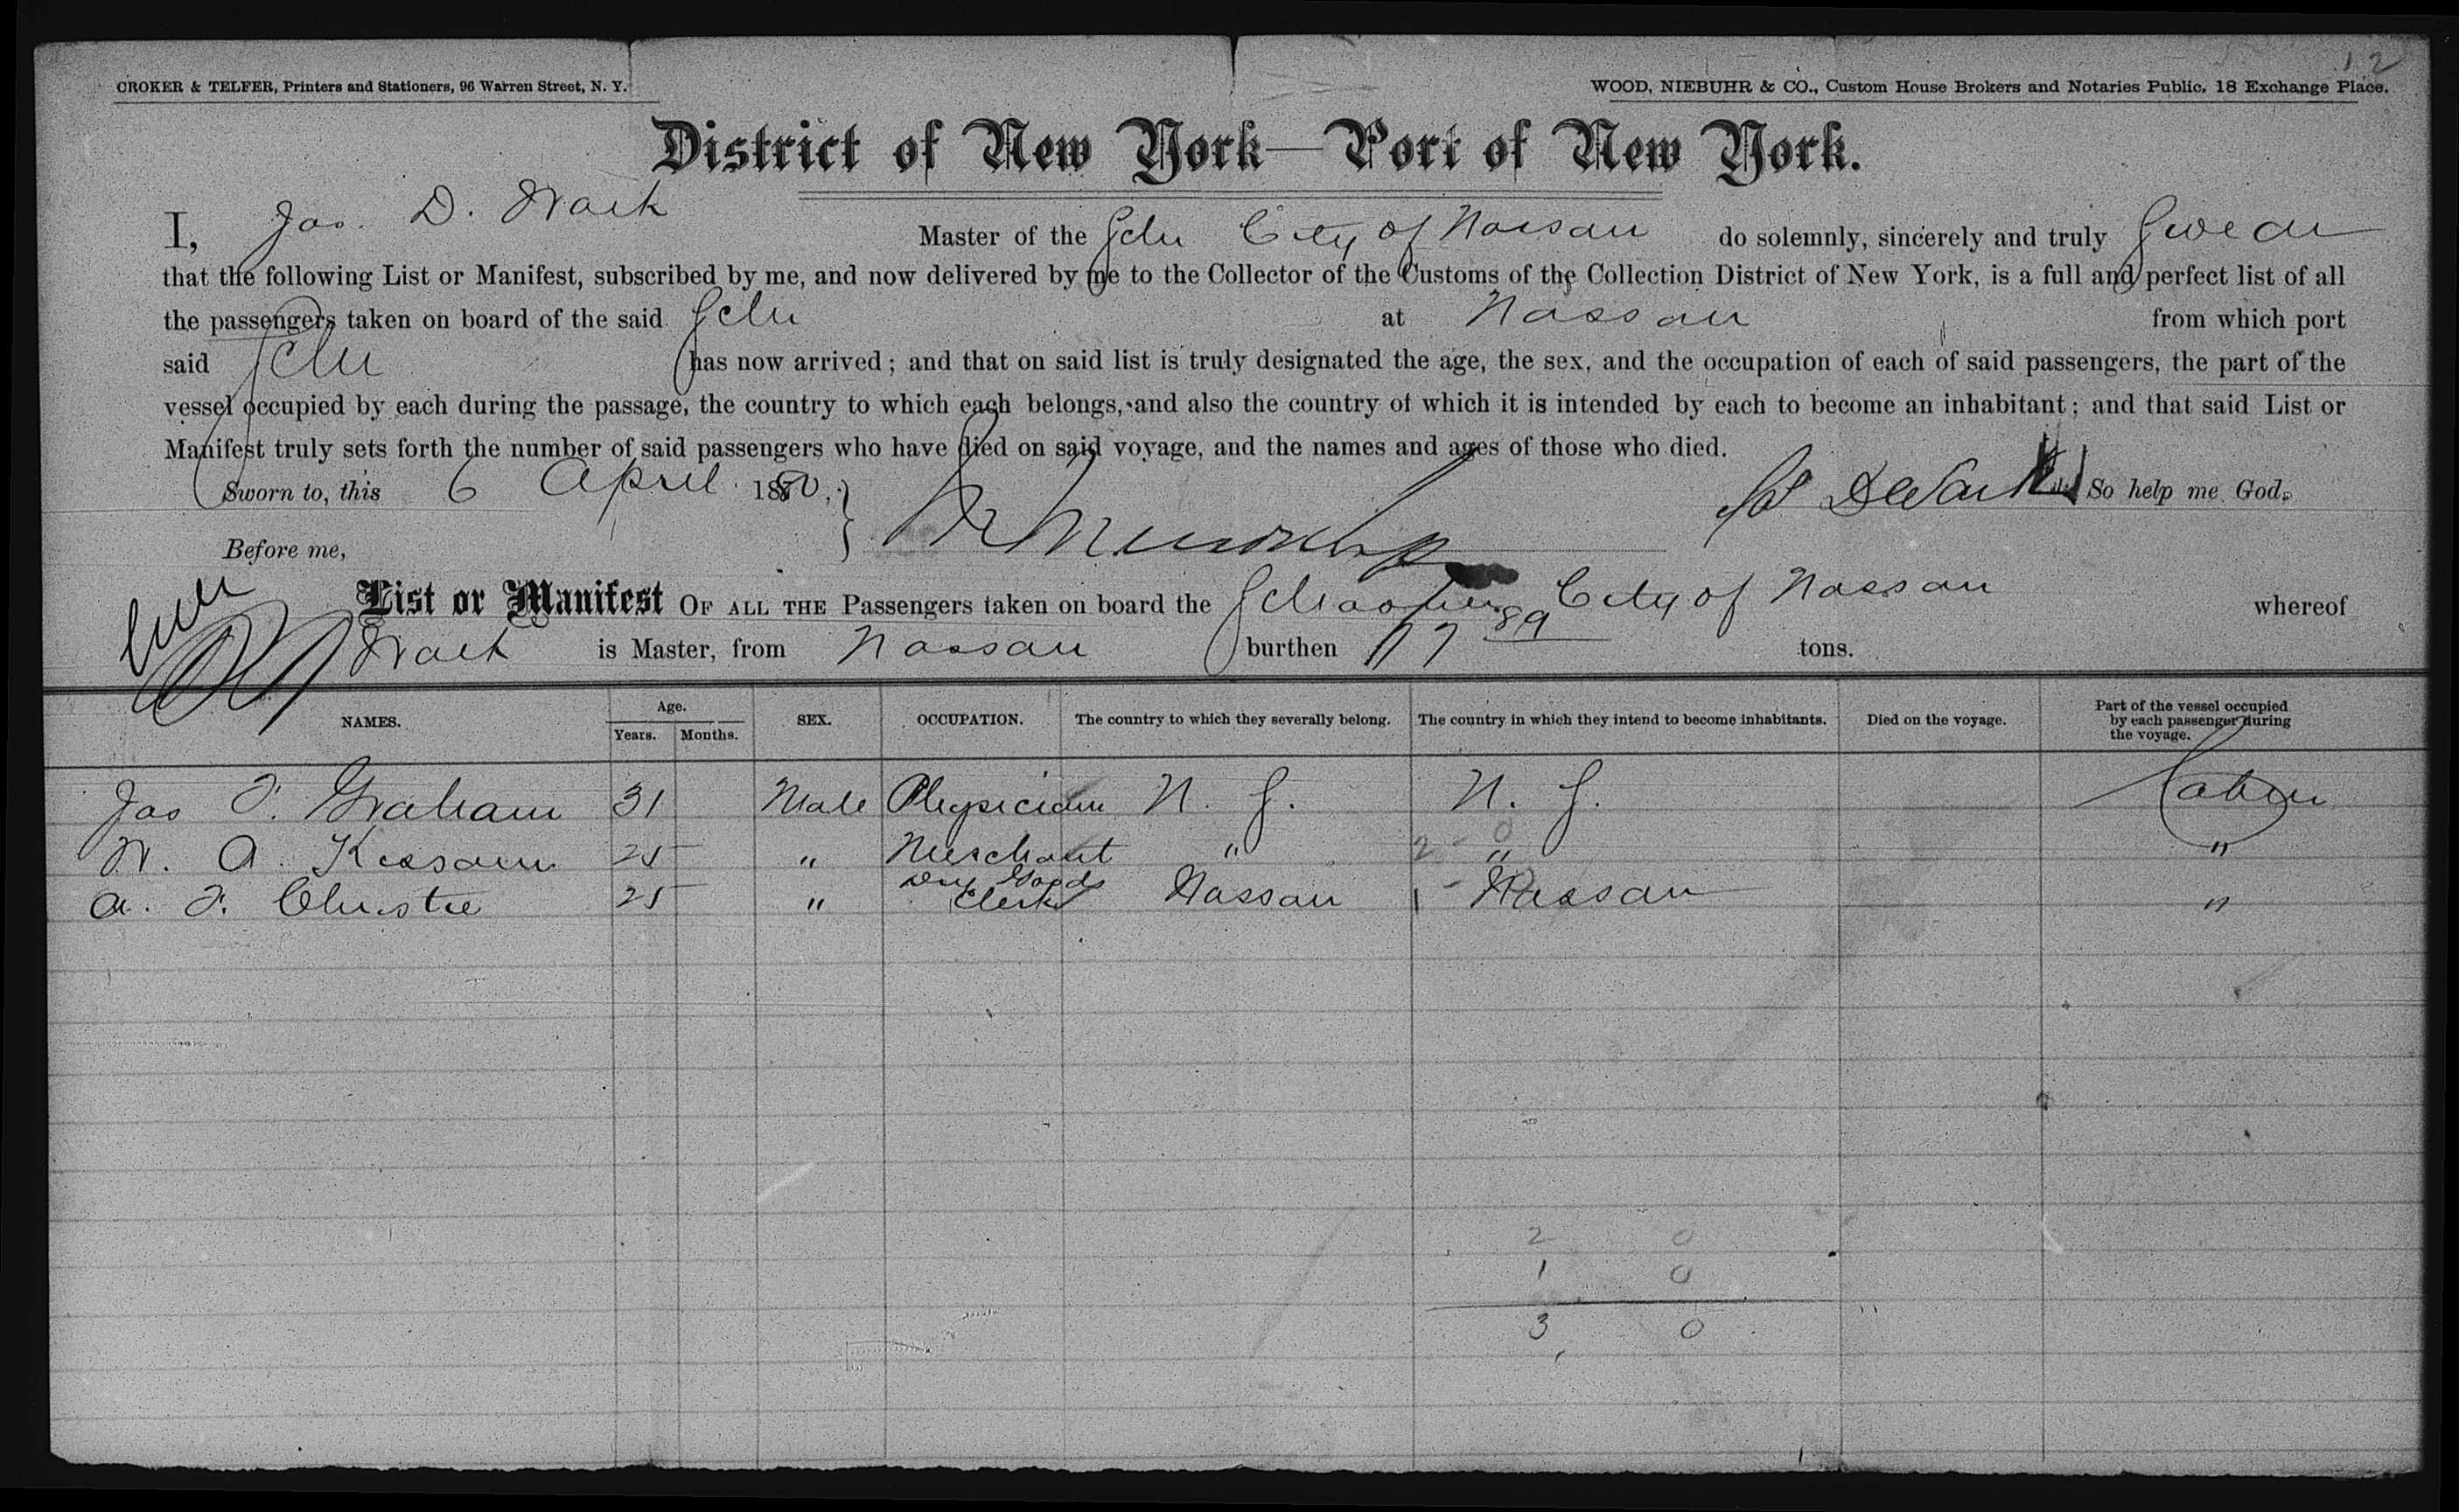 12
CROKER & TELFER, Printers and Stationers, 96 Warren Street, N. Y.
WOOD, NIEBUHR & CO., Custom House Brokers and Notaries Public, 18 Exchange Place.
District of New York—Port of New York.
I, Jas. D. Wark Master of the Schr City of Nassau do solemnly, sincerely and truly Swear
that the following List or Manifest, subscribed by me, and now delivered by me to the Collector of the Customs of the Collection District of New York, is a full and perfect list of all
the passengers taken on board of the said Schr at Nassau from which port
said Schr has now arrived; and that on said list is truly designated the age, the sex, and the occupation of each of said passengers, the part of the
vessel occupied by each during the passage, the country to which each belongs, and also the country of which it is intended by each to become an inhabitant; and that said List or
Manifest truly sets forth the number of said passengers who have died on said voyage, and the names and ages of those who died.
Sworn to, this 6 April 1880, } J D Wark So help me God.
Before me,
List or Manifest OF ALL THE Passengers taken on board the Schooner City of Nassau whereof
Wark is Master, from Nassau burthen 89 tons.
NAMES. Age. Years. Months. SEX. OCCUPATION. The country to which they severally belong. The country in which they intend to become inhabitants. Died on the voyage. Part of the vessel occupied by each passenger during the voyage.
Jas F. Graham 31 Male Physician N. J. N. J. Cabin
W. A. Kissam 25 " Merchant " 2 - 0 " "
A. F. Christie 25 " Dry Goods Clerk Nassau 1 - 0 Nassau "
2 0
1 0
3 0